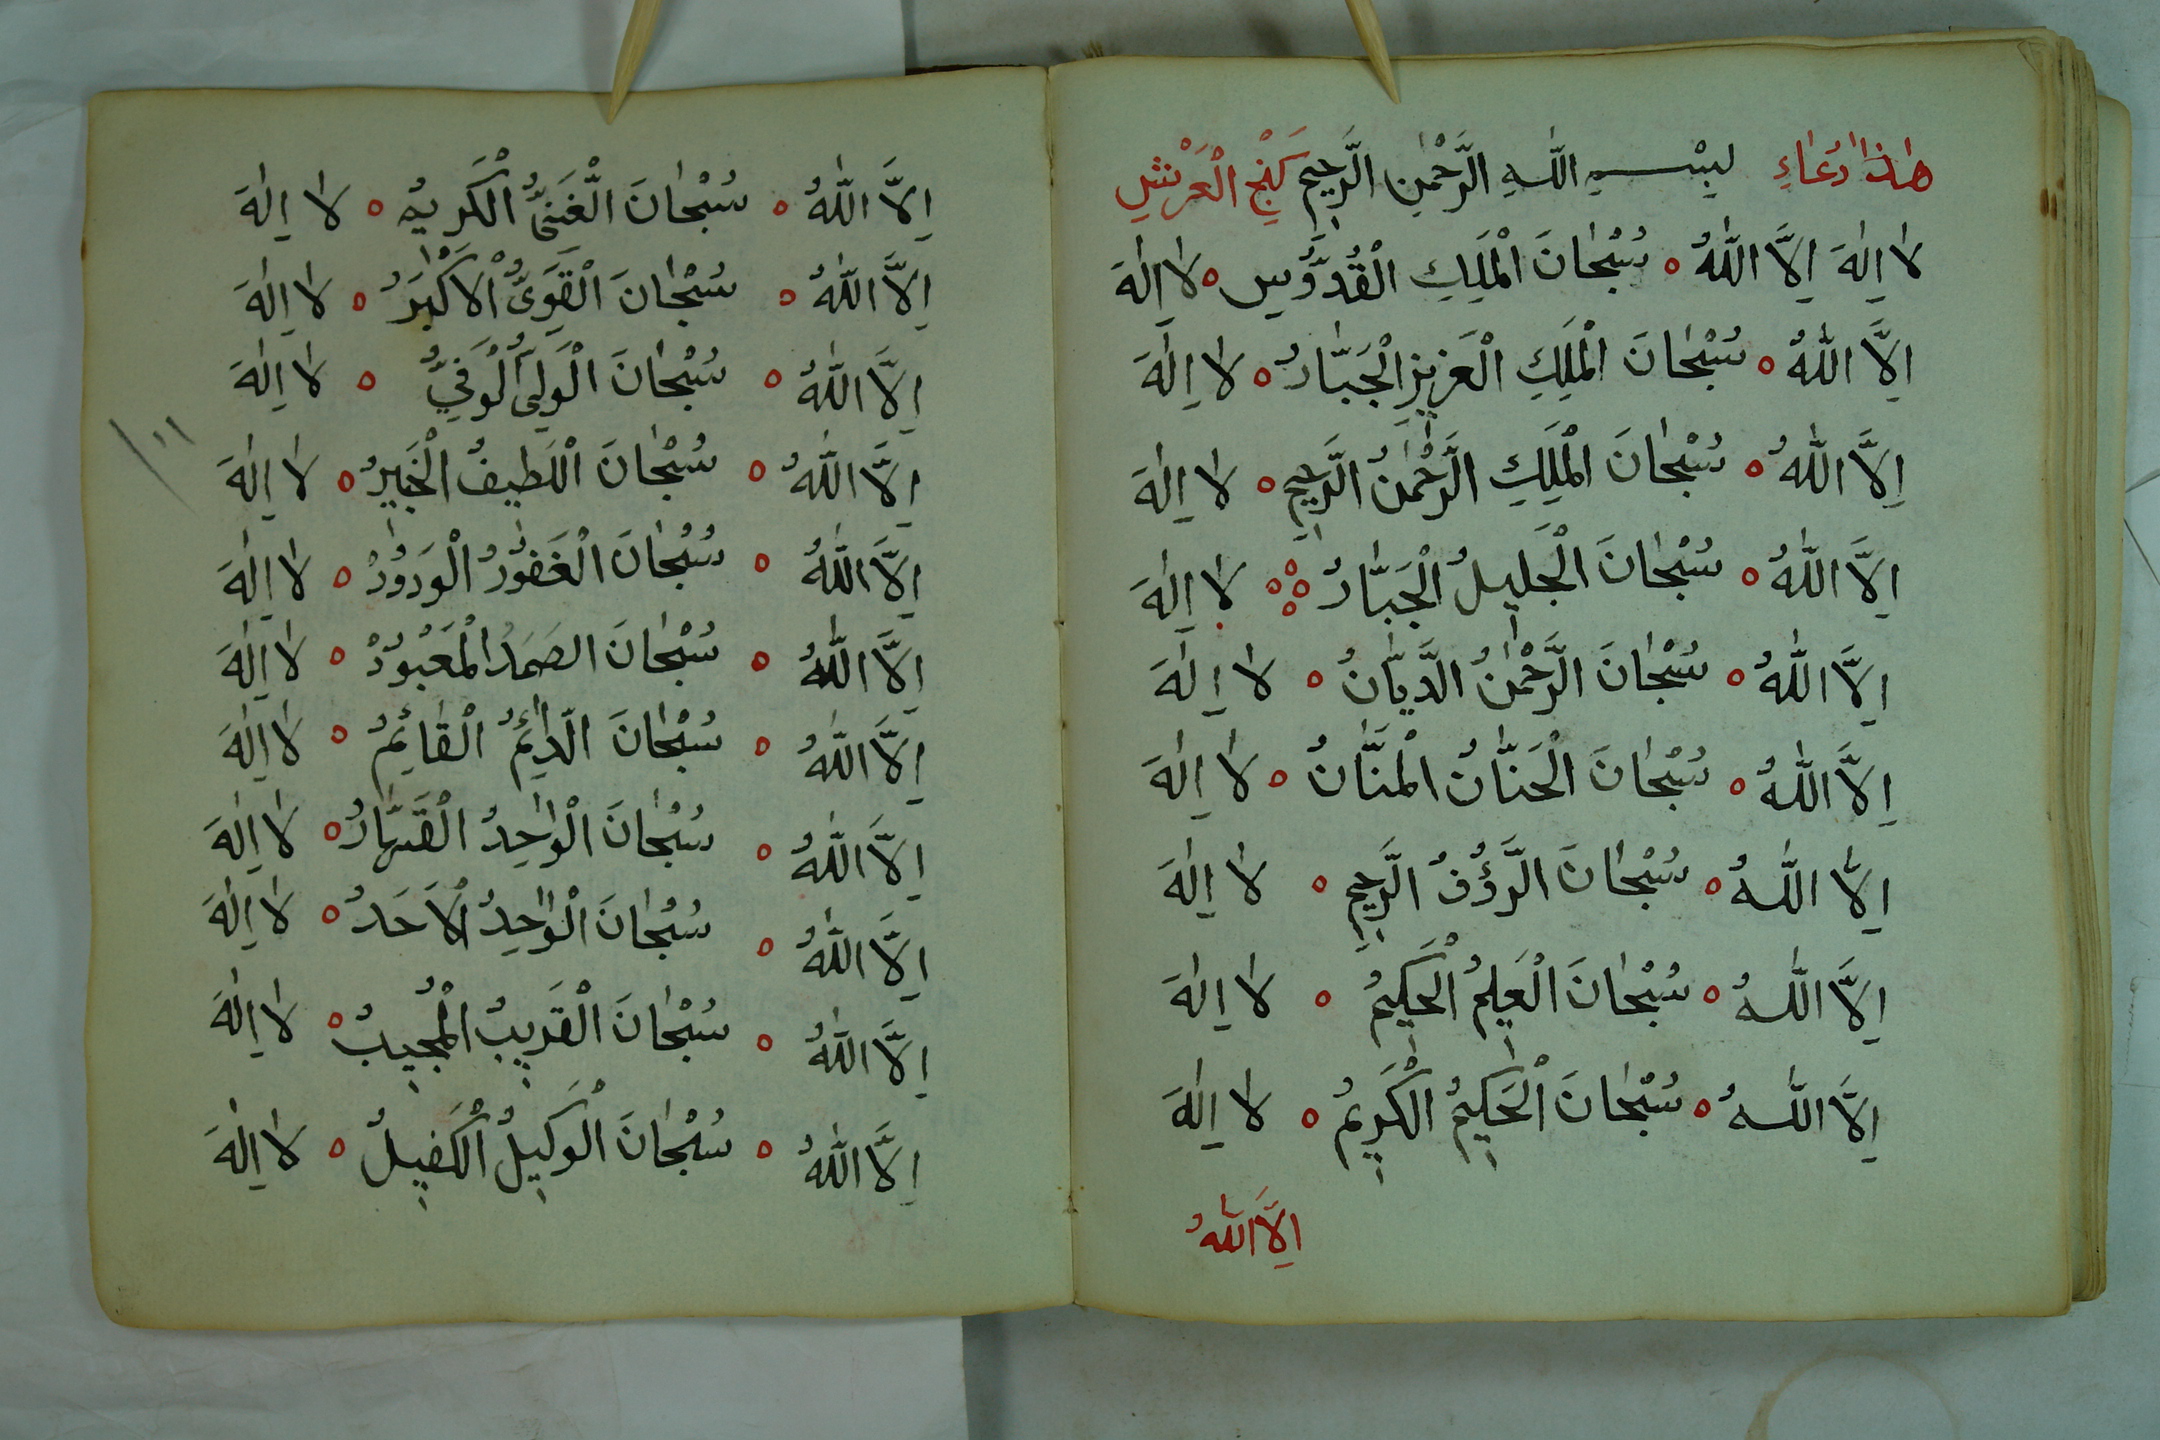 هٰذَا دُعَاءِ بِسْــــمِ اللّٰهِ الرَّحْمٰنِ الرَّحِيمِ كَنْجِ الْعَرْشِ
لَا اِلٰهَ اِلَّا اللّٰهُ ° سُبْحَانَ الْمَلِكِ الْقُدُّوسِ ° لَا اِلٰهَ
اِلَّا اللّٰهُ ° سُبْحَانَ الْمَلِكِ الْعَزِيزِ الْجَبَّارُ ° لَا اِلٰهَ
اِلَّا اللّٰهُ ° سُبْحَانَ الْمَلِكِ الرَّحْمٰنُ الرَّحِيمِ ° لَا اِلٰهَ
اِلَّا اللّٰهُ ° سُبْحَانَ الْجَلِيلُ الْجَبَّارُ ° لَا اِلٰهَ
اِلَّا اللّٰهُ ° سُبْحَانَ الرَّحْمٰنُ الدَّيَّانُ ° لَا اِلٰهَ
اِلَّا اللّٰهُ ° سُبْحَانَ الْحَنَّانُ الْمَنَّانُ ° لَا اِلٰهَ
اِلَّا اللّٰهُ ° سُبْحَانَ الرَّؤُفُ الرَّحِيمِ ° لَا اِلٰهَ
اِلَّا اللّٰهُ ° سُبْحَانَ الْعَلِيمُ الْحَكِيمُ ° لَا اِلٰهَ
اِلَّا اللّٰهُ ° سُبْحَانَ الْحَكِيمُ الْكَرِيمُ ° لَا اِلٰهَ
اِلَّا اللّٰهُ
اِلَّا اللّٰهُ ° سُبْحَانَ الْغَنِىُّ الْكَرِيمُ ° لَا اِلٰهَ
اِلَّا اللّٰهُ ° سُبْحَانَ الْقَوِىُّ الْاَكْبَرُ ° لَا اِلٰهَ
اِلَّا اللّٰهُ ° سُبْحَانَ الْوَلِىُّ الْوَفِيُّ ° لَا اِلٰهَ
اِلَّا اللّٰهُ ° سُبْحَانَ اللَّطِيفُ الْخَبِيرُ ° لَا اِلٰهَ
اِلَّا اللّٰهُ ° سُبْحَانَ الْغَفُورُ الْوَدُودُ ° لَا اِلٰهَ
اِلَّا اللّٰهُ ° سُبْحَانَ الصَمَدُ الْمَعْبُودُ ° لَا اِلٰهَ
اِلَّا اللّٰهُ ° سُبْحَانَ الدَّائِمُ الْقَائِمُ ° لَا اِلٰهَ
اِلَّا اللّٰهُ ° سُبْحَانَ الْوَاحِدُ الْقَهَّارُ ° لَا اِلٰهَ
اِلَّا اللّٰهُ ° سُبْحَانَ الْوَاحِدُ الْاَحَدُ ° لَا اِلٰهَ
اِلَّا اللّٰهُ ° سُبْحَانَ الْقَرِيبُ الْمُجِيبُ ° لَا اِلٰهَ
اِلَّا اللّٰهُ ° سُبْحَانَ الْوَكِيلُ الْكَفِيلُ ° لَا اِلٰهَ